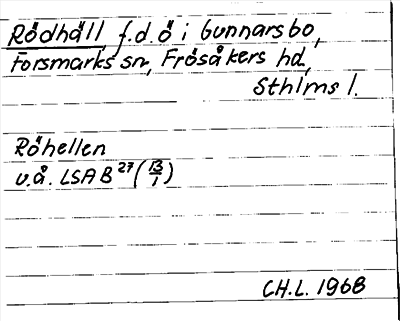 Rödhäll, f.d. ö i Gunnarsbo,
Forsmarks sn, Frösåkers hd,
Sthlms l.
Röhellen
u.å. LSA B 27 (B/1)
CH.L. 1968